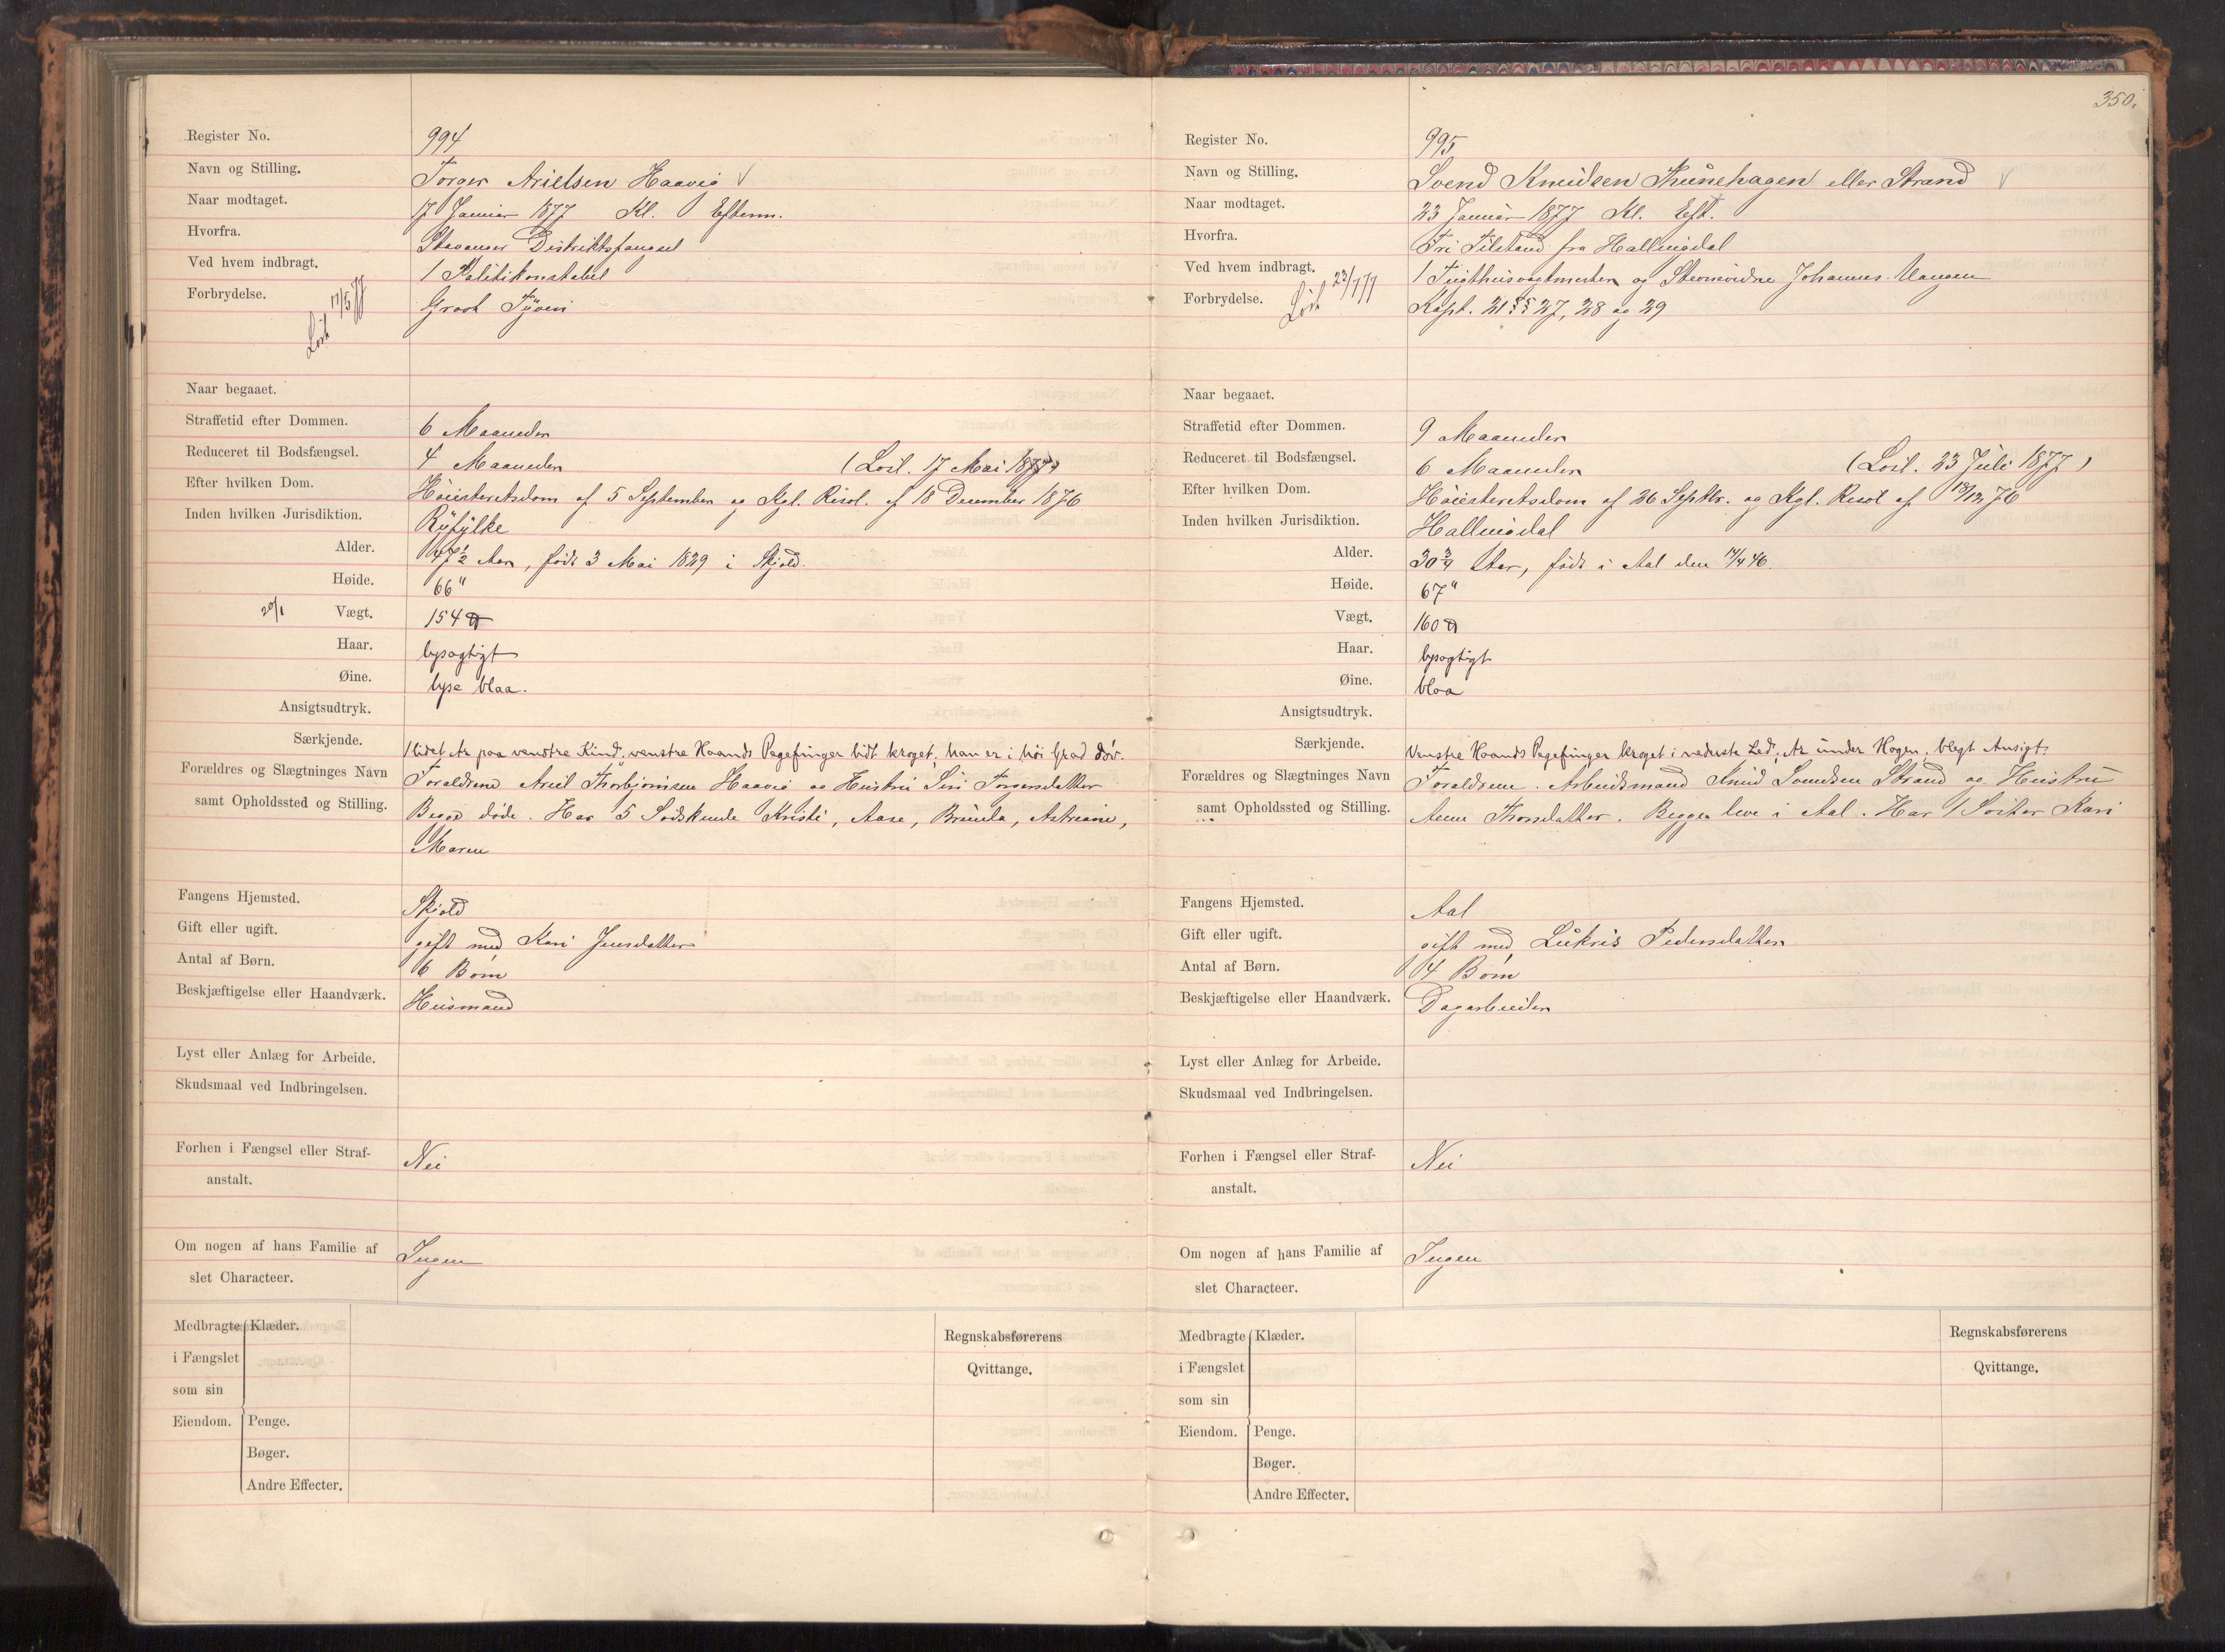 Register No. 994
Navn og Stilling. Torger Arielsen Haavig √
Naar modtaget. 17 Januar 1877 Kl. Efterm.
Hvorfra. Stavanger Distriktsfængsel
Ved hvem indbragt. 1 Politikonstabel
Forbrydelse. Løsl. 17/5 77 Grovt Tyveri
Naar begaaet.
Straffetid efter Dommen. 6 Maaneder
Reduceret til Bodsfængsel. 4 Maaneder (Løsl. 17 Mai 1877)
Efter hvilken Dom. Høiesteretsdom af 5 September og Kgl. Resol. af 18 December 1876
Inden hvilken Jurisdiktion. Ryfylke
Alder. 47½ Aar, født 3 Mai 1829 i Skjold.
Høide. 66"
20/1 Vægt. 154 ℔
Haar. lysagtigt
Øine. lyse blaa.
Ansigtsudtryk.
Særkjende. 1 lidet Ar paa venstre Kind, venstre Haands Pegefinger lidt kroget, han er i høi Grad døv.
Forældres og Slægtninges Navn Forældrene Ariel Thorbjørnsen Haavig og Hustru Siri Torgersdatter
samt Opholdssted og Stilling. Begge døde. Har 5 Sødskende Kristi, Aase, Brunla, Astriane,
Maren
Fangens Hjemsted. Skjold
Gift eller ugift. gift med Kari Jensdatter
Antal af Børn. 6 Børn
Beskjæftigelse eller Haandværk. Husmand
Lyst eller Anlæg for Arbeide.
Skudsmaal ved Indbringelsen.
Forhen i Fængsel eller Straf- Nei
anstalt.
Om nogen af hans Familie af Ingen
slet Characteer.
Medbragte Klæder. Regnskabsførerens
i Fængslet Qvittange.
som sin
Eiendom. Penge.
Bøger.
Andre Effecter.
350.
Register No. 995
Navn og Stilling. Svend Knudsen Thunehagen eller Strand √
Naar modtaget. 23 Januar 1877 Kl. Eft.
Hvorfra. Fri Tilstand fra Hallingdal
Ved hvem indbragt. 1 Tugthusvagtmester og Stevnevidne Johannes Mangen
Forbrydelse. Løsl 23/7 77 Kapt. 21 §§ 27, 28 og 29
Naar begaaet.
Straffetid efter Dommen. 9 Maaneder
Reduceret til Bodsfængsel. 6 Maaneder (Løsl. 23 Juli 1877)
Efter hvilken Dom. Høiesteretsdom af 26 Septbr. og Kgl. Resol af 18/12 76
Inden hvilken Jurisdiktion. Hallingdal
Alder. 30¾ Aar, født i Aal den 14/4 46.
Høide. 67"
Vægt. 160 ℔
Haar. lysagtigt
Øine. blaa
Ansigtsudtryk.
Særkjende. Venstre Haands Pegefinger kroget i nederste Led, Ar under Hagen, blegt Ansigt
Forældres og Slægtninges Navn Forældrene. Arbeidsmand Knud Svendsen Strand og Hustru
samt Opholdssted og Stilling. Anne Thorsdatter. Begge leve i Aal. Har 1 Søster Kari
Fangens Hjemsted. Aal
Gift eller ugift. gift med Lukris Pedersdatter
Antal af Børn. 4 Børn
Beskjæftigelse eller Haandværk. Dagarbeider
Lyst eller Anlæg for Arbeide.
Skudsmaal ved Indbringelsen.
Forhen i Fængsel eller Straf- Nei
anstalt.
Om nogen af hans Familie af Ingen
slet Characteer.
Medbragte Klæder. Regnskabsførerens
i Fængslet Qvittange.
som sin
Eiendom. Penge.
Bøger.
Andre Effecter.